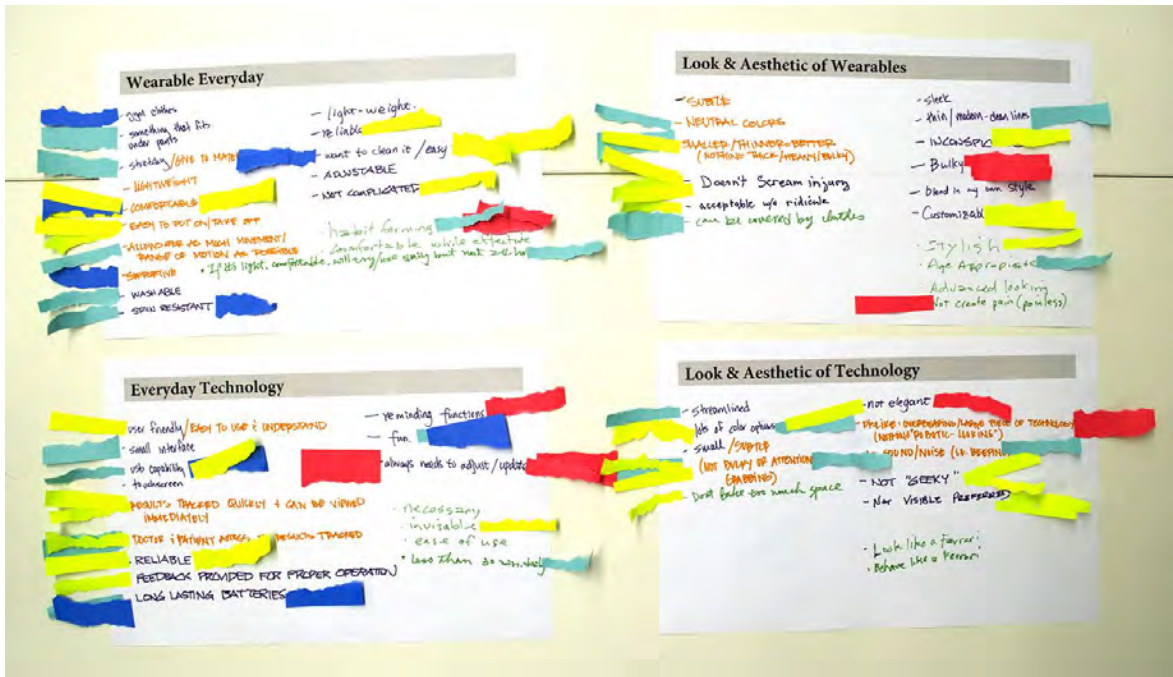 Wearable Everyday
- gym clothes
- something that fits
under pants
- stretchy/GIVE TO
- LIGHTWEIGHT
- COMFORTABLE
- EASY TO PUT ON/TAKE OFF
- ALLOW FOR AS MUCH MOVEMENT/
RANGE OF MOTION AS POSSIBLE
- SUPPORTIVE
- WASHABLE
- light-weight.
- reliable
- want to clean it/easy
- ADJUSTABLE
- NOT COMPLICATED
- habit forming
- comfortable while effective
• If it's light, comfortable, will
Look & Aesthetic of Wearables
- SUBTLE
- NEUTRAL COLORS
SMALLER/THINNER=BETTER
(NOTHING THICK/HEAVY/BULKY)
- Doesn't scream injury
- acceptable w/o ridicule
- can be covered by clothes
- sleek
- thin/modern-clean lines
- INCONSPIC
- Bulky
- blend in my own style
- Customizabl
- Stylish
- Age Appropriate
Advanced looking
Not create pain (painless)
Everyday Technology
user friendly/EASY TO USE & UNDERSTAND
- small interface
usb capability
- touchscreen
RESULTS TRACKED QUICKLY & CAN BE VIEWED
IMMEDIATELY
DOCTOR & PATIENT RESULTS TRACKED
- RELIABLE
FEEDBACK PROVIDED FOR PROPER OPERATION
LONG LASTING BATTERIES
- reminding functions
- fun
- always needs to adjust/update
- necessary
- invisable
- ease of use
• less than 30
Look & Aesthetic of Technology
- streamlined
lots of color options
- small/SUBTLE
(NOT BULKY OR ATTENTION
GRABBING)
- Dont take too much space
- not elegant
DISLIKE: OVERBEARING/LARGE PIECE OF TECHNOLOGY
"ROBOTIC-LOOKING")
SOUND/NOISE (I.E. BEEPING
- NOT "GEEKY"
- NOT VISIBLE PREFERRED
- Look like a Ferrari
- Behave like a Ferrari